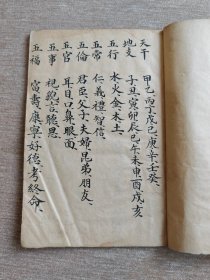 天干　甲乙丙丁戊己、庚辛壬癸、
地支　子丑、寅卯辰巳午未申酉戌亥
五行　水火金、木土、
五常　仁義禮智信、
五倫　君臣、父子、夫婦、昆弟、朋友、
五官　耳目口鼻眼、面、
五事　視貌言聽思、
五福　富壽、康寧好德、考終命、